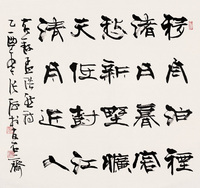 移舟泊煙
渚日暮客
愁新野曠
天低樹江
清月近人
孟浩然詩
乙酉